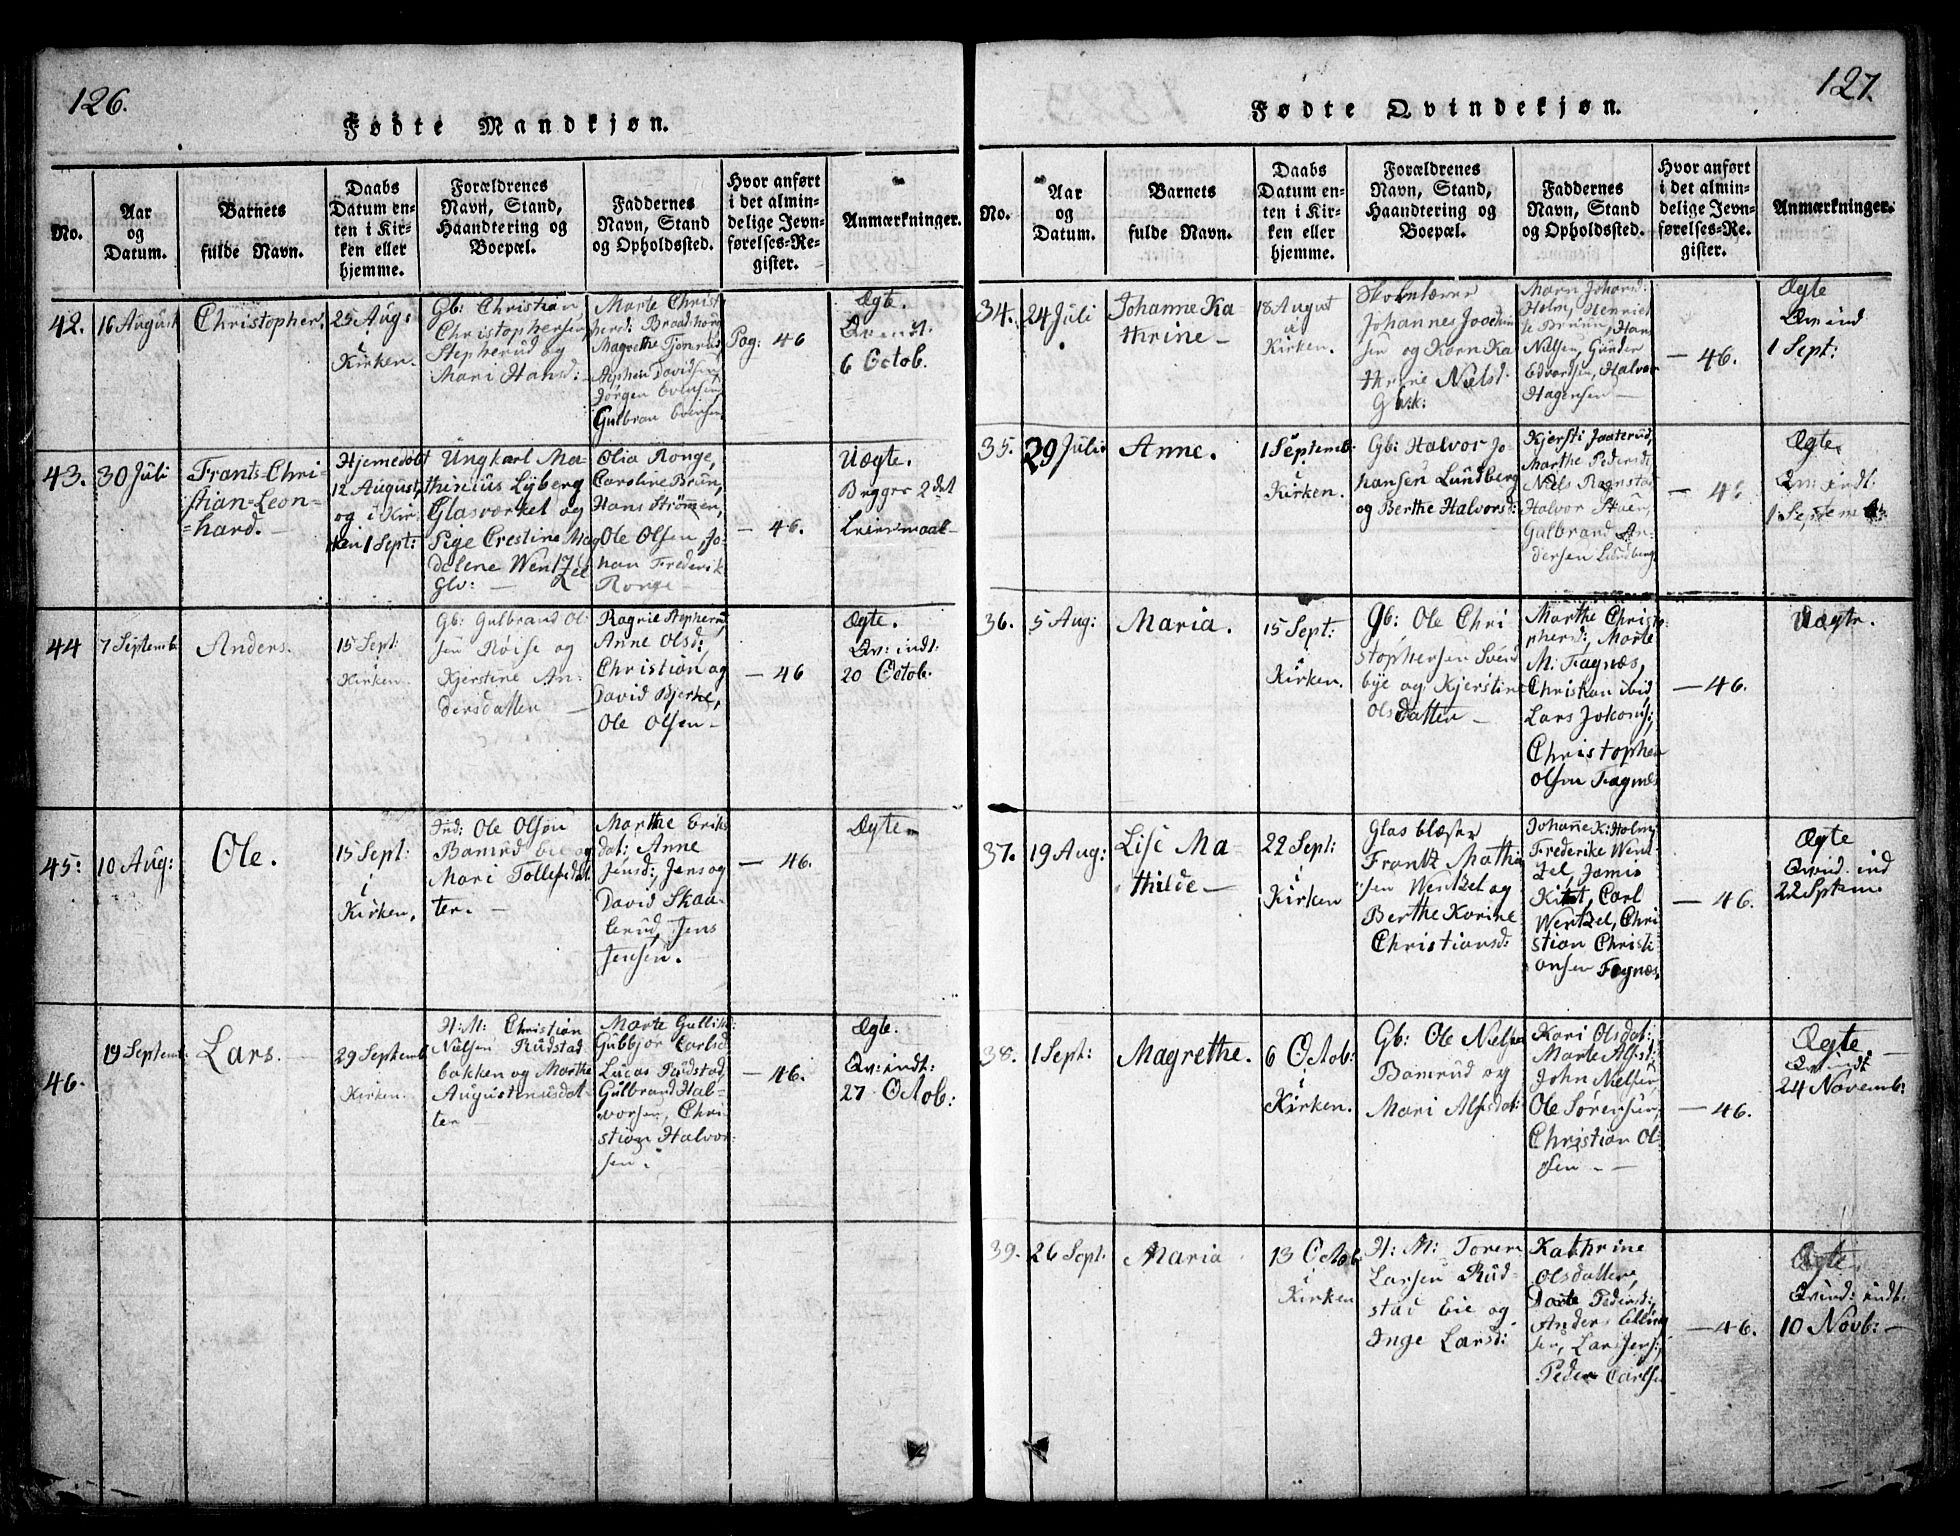 126.
Fødte Mandkjøn.
No.
Aar
og
Datum.
Barnets
fulde Navn.
Daabs
Datum en-
ten i Kir-
ken eller
hjemme.
Forældrenes
Navn, Stand,
Haandtering og
Boepæl.
Faddernes
Navn, Stand
og Opholdssted.
Hvor anført
i det almin-
delige Jevn-
førelses-Re-
gister.
Anmærkninger.
42.
16 August
Christopher.
25 Aug:
i
Kirken.
Gb: Christian
Christophersen
Stepherud og
Mari Hansd:
Marte Christ
phersd:
Magrethe
Stephen Davidsen,
Jørgen Evensen
Gulbran Evensen
Pag: 46
Ægte.
6 Octob.
43.
30 Juli
Frants-Chri-
stian-Leon-
hard.
Hjemedøbt
12 August,
og i Kir-
ken 1 Sept:
Ungkarl Ma-
thinius Lyberg
Glasværket og
Pige Crestine Mag
delene Wentzel
Glv: —
Olia Ronge,
Caroline Brun,
Hans Strömmen,
Ole Olsen, Jo-
han Frederik
Ronge —
— 46.
Uægte.
Begges 2det
Leiermaal —
44
7 Septemb
Anders.
15 Sept:
i
Kirken.
Gb: Gulbrand Ol-
sen Röise og
Kjerstine An-
dersdatten —
Ragnie Stepherud
Anne Olsd:
Christian og
David Bjerke,
Ole Olsen —
— 46
Ægte.
Qv: indt:
20 Octob.
45:
10 Aug:
Ole.
15 Sept:
i
Kirken.
Ind: Ole Olsen
Bamrud Eie og
Mari Tollefsdat
ter. —
Marthe Eriks
dat: Anne
Jensd:, Jens og
David Skaa-
lerud, Jens
Jensen. —
— 46.
Ægte —
46.
19 Septemb.
Lars. —
29 Septemb
Kirken.
H: M: Christian
Nielsen Rudstad
bakken og Marthe
Augustinusdat-
ter —
Marte Gulliks:
Gubbjør Carlsd
Lucas Rudstad,
Gulbrand Hal-
vorsen, Chri-
stian Halvor-
sen.
— 46.
Ægte.
Qv: indt:
27 Octob:
127.
Fødte Qvindekjøn.
No.
Aar
og
Datum.
Barnets
fulde Navn.
Daabs
Datum en-
ten i Kir-
ken eller
hjemme.
Forældrenes
Navn, Stand,
Haandtering og
Boepæl.
Faddernes
Navn, Stand
og Opholdssted.
Hvor anført
i det almin-
delige Jevn-
førelses-Re-
gister.
Anmærkninger.
34.
24 Juli
Johanne Ka-
thrine —
18 August
i
Kirken.
Skolelærer
Johannes Joachim
sen og Karn Ka
thrine Nielsd.
Maren Johansd:
Holm, Henriet
te Brunn, Hans
Nilsen, Gunder
Edvardsen, Halvor
Hagensen —
— 46.
Ægte
Qvind
1 Sept:
35.
29 Juli
Anne.
1 Septemb:
i
Kirken.
Gb: Halvor Jo-
hansen Lundberg
og Berthe Halvorsd:
Kjersti Jaaterud,
Marthe Pedersd:
Niels
Halvor
Gulbrand An-
dersen Lundberg
Ægte.
Qv: indt
1 Septemb:
36.
5 Aug:
Maria.
15 Sept:
i
Kirken.
Gb: Ole Chri
stophersen Svend
bye og Kjerstine
Olsdatter —
Marthe Christo
phersd:, Marte
M: Fagnæs,
Christian ibid
Lars Jokoms:,
Christopher
Olsen Fagnæs
— 46.
Uægte.
37.
19 Aug:
Lise Ma-
thilde —
22 Sept:
i
Kirken
Glasblæser
Frantz Mathi
sen Wentzel og
Berthe Karine
Christiansd:
Johanne K: Holm,
Frederike Went-
zel, Jamis
Carl
Wentzel, Chri
stian Christi
ansen Fagnæs.
— 46.
Ægte
Qvind. ind
22 Sptem.
38.
1 Sept:
Magrethe.
6 Octob:
i
Kirken.
Gb: Ole Nielsen
Bamrud og
Mari Alfsdat:
Kari Olsdat:
Marte Alfsd:
John Nielsen,
Ole Sørensen,
Christian Ol-
sen. —
— 46.
Ægte —
Qv indt
24 Novemb:
39.
26 Sept:
Maria
13 Octob
i
Kirken
H: M: Torer
Larsen Rud-
stad Eie og
Inge Larsd:
Kathrine
Olsdatter,
Dorte Pedersd:,
Anders Elling
sen, Lars Jens:,
Peder Carlsen
— 46.
Ægte
Qvind: indt:
10 Novb: —